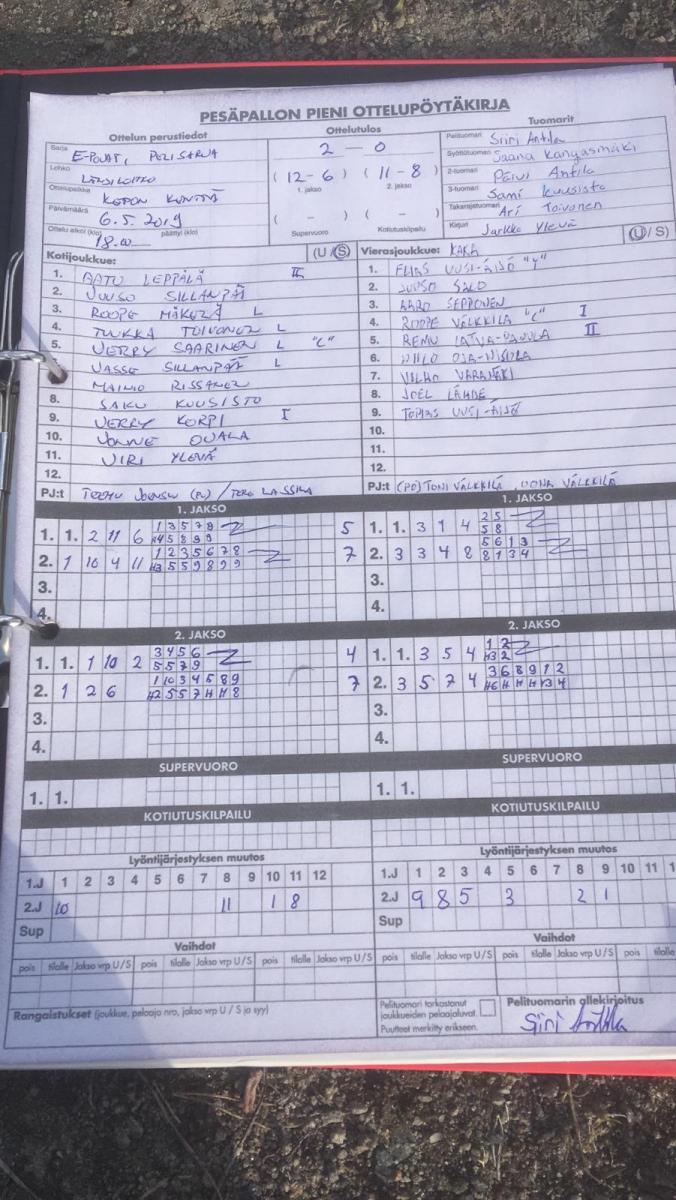 PESÄPALLON PIENI OTTELUPÖYTÄKIRJA
Ottelun perustiedot
Sarja E-POJAT, PERUSSARJA
Lohko
Ottelupaikka KOPON KENTTÄ
Päivämäärä 6.5.2019
Ottelu alkoi (klo) 18.00 päättyi (klo)
Ottelutulos
2 — 0
( 12 - 6 ) ( 11 - 8 )
1. jakso 2. jakso
( - ) ( - )
Supervuoro Kotiutuskilpailu
Tuomarit
Pelituomari Siiri Antila
Syöttötuomari Jaana Kangasmäki
2-tuomari Päivi Antila
3-tuomari Sami Kuusisto
Takarajatuomari Ari Toivonen
Kirjuri Jarkko Ylevä
Kotijoukkue: (U / S)
1. AATU LEPPÄLÄ II
2. JUUSO SILLANPÄÄ
3. ROOPE MÄKELÄ L
4. TUUKKA TOIVONEN L
5. VERRY SAARINEN L "C"
VASSE SILLANPÄÄ L
MAINIO RISSANEN
8. SAKU KUUSISTO
9. VERRY KORPI I
10. JONNE OVALA
11. VIRI YLEVÄ
12.
PJ:t TEEMU (PJ) / TERO LASSILA
Vierasjoukkue: KAKA (U / S)
1. ELIAS UUSI-ÄIJÖ
2. JUUSO SALO
3. AARO SEPPONEN
4. ROOPE VÄLKKILÄ "C" I
5. REMU II
6.
7. VILHO
8. JOEL LÄHDE
9. TOMAS UUSI-ÄIJÖ
10.
11.
12.
PJ:t (PJ) TONI VÄLKKILÄ, OONA VÄLKKILÄ
1. JAKSO
1. 1. 2 11 6 1 3 5 7 8 5
5 8 9 9
2. 1 10 4 11 1 2 3 5 6 7 8 7
H3 5 5 9 8 9 9
3.
4.
1. JAKSO
1. 1. 3 1 4 2 5
5 8
2. 3 3 4 8 5 6 1 3
8 1 3 4
3.
4.
2. JAKSO
1. 1. 1 10 2 3 4 5 6 4
5 5 7 9
2. 1 2 6 1 10 3 4 5 8 9 7
H2 5 5 7 H H 8
3.
4.
2. JAKSO
1. 1. 3 5 4 1 2
H3 2
2. 3 5 7 4 3 6 8 9 1 2
H6 H H H H3 4
3.
4.
SUPERVUORO
1. 1.
SUPERVUORO
1. 1.
KOTIUTUSKILPAILU
KOTIUTUSKILPAILU
Lyöntijärjestyksen muutos
1.J 1 2 3 4 5 6 7 8 9 10 11 12
2.J 10 11 1 8
Sup
Lyöntijärjestyksen muutos
1.J 1 2 3 4 5 6 7 8 9 10 11 1
2.J 9 8 5 3 2 1
Sup
Vaihdot
pois tilalle Jakso vrp U/S pois tilalle Jakso vrp U/S pois tilalle Jakso vrp U/S
Vaihdot
pois tilalle Jakso vrp U/S pois tilalle Jakso vrp U/S pois
Rangaistukset (joukkue, pelaaja nro, jakso vrp U / S ja syy)
Pelituomari tarkastanut
joukkueiden pelaajaluvat.
Puutteet merkitty erikseen.
Pelituomarin allekirjoitus
Siiri Antila